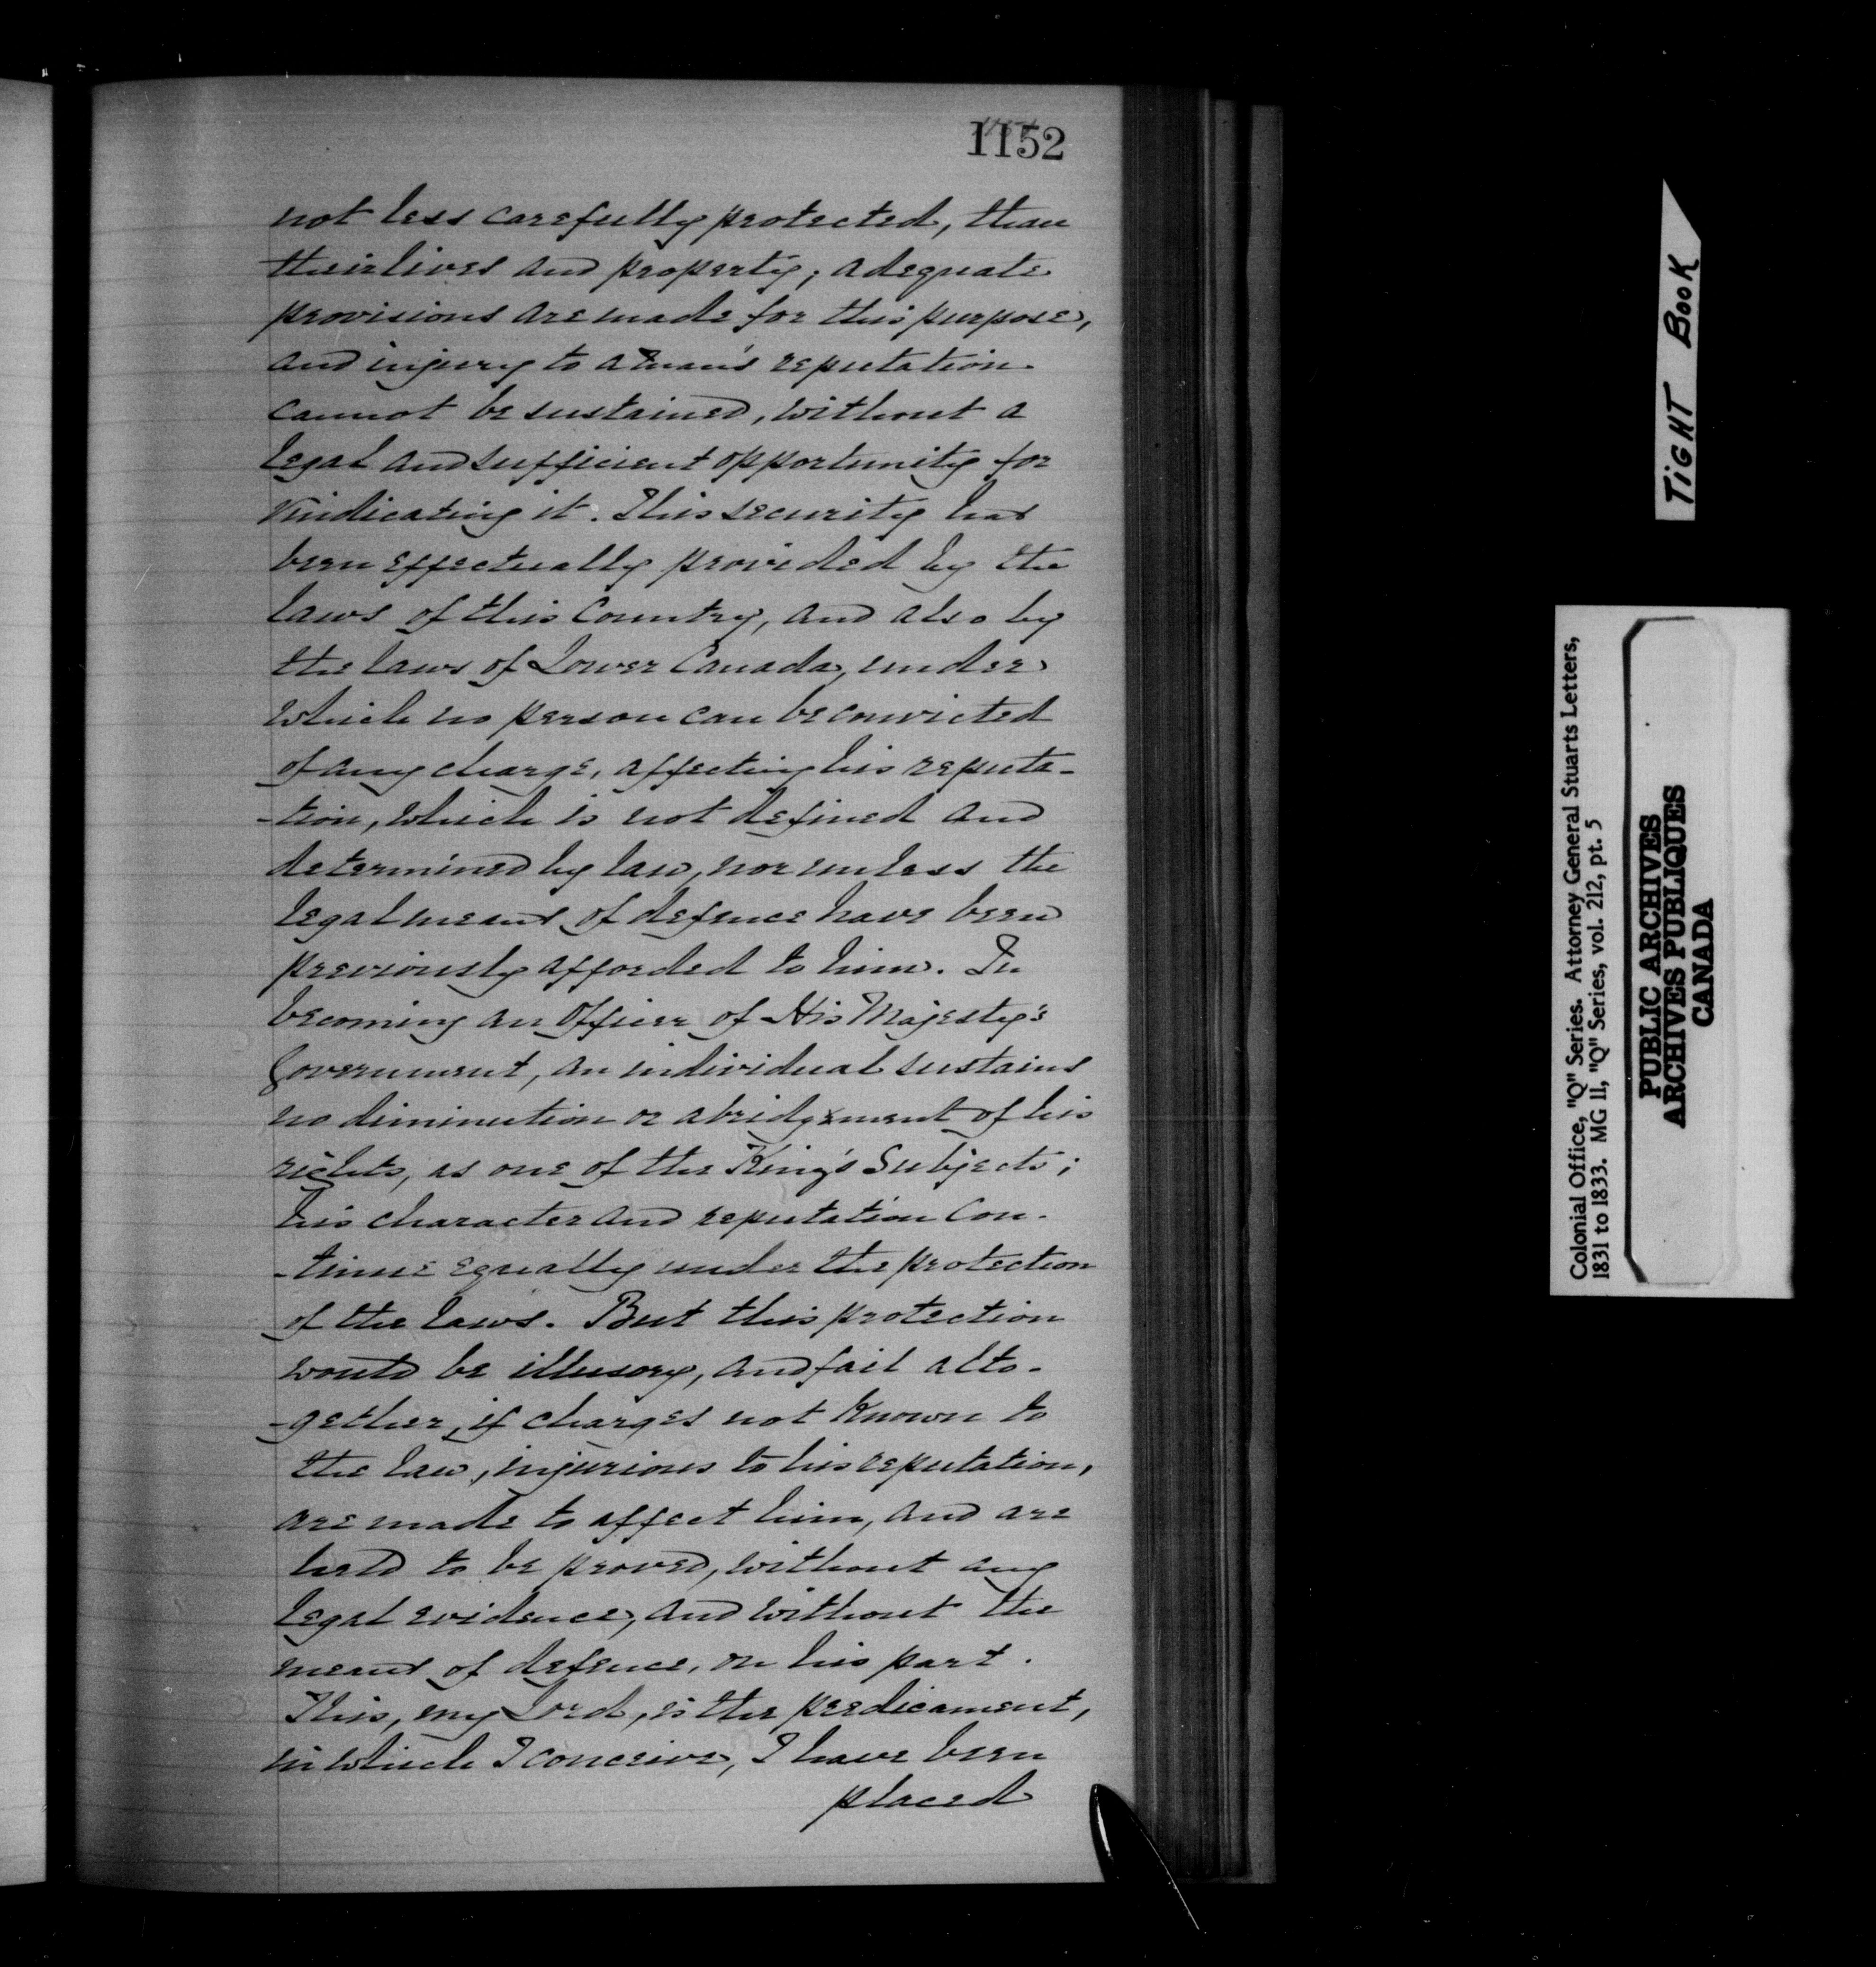 1152
not less carefully protected, than
their lives and property; adequate
provisions are made for this purpose,
and injury to a man's reputation
cannot be sustained, without a
legal and sufficient opportunity for
vindicating it. This security has
been effectually provided by the
laws of this Country, and also by
the laws of Lower Canada, under
which no person can be convicted
of any charge, affecting his reputa-
-tion, which is not defined and
determined by law, nor unless the
legal means of defence have been
previously afforded to him. In
becoming an Officer of His Majesty's
Government, an individual sustains
no diminution or abridgement of his
rights, as one of the King's Subjects;
his character and reputation con-
-tinue equally under the protection
of the laws. But this protection
would be illusory, and fail alto-
-gether, if charges not known to
the law, injurious to his reputation,
are made to affect him, and are
held to be proved, without any
legal evidence, and without the
means of defence, on his part.
This, my Lord, is the predicament,
in which I conceive, I have been
placed
TIGHT BOOK
Colonial Office, "Q" Series. Attorney General Stuarts Letters,
1831 to 1833. MG 11, "Q" Series, vol. 212, pt. 5
PUBLIC ARCHIVES
ARCHIVES PUBLIQUES
CANADA